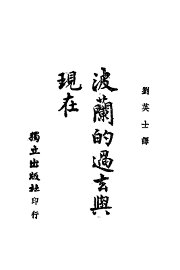 劉英士譯
波蘭的過去與
現在
獨立出版社印行